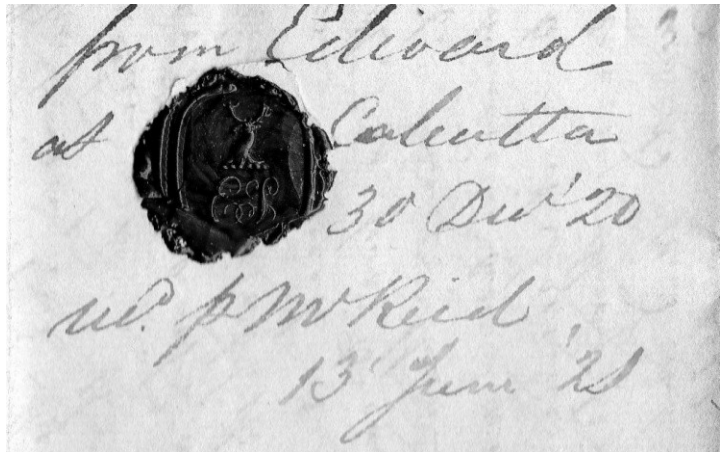 from Edward
at Calcutta
30 Decr '20
recd. p Mr Reid
13 June '21